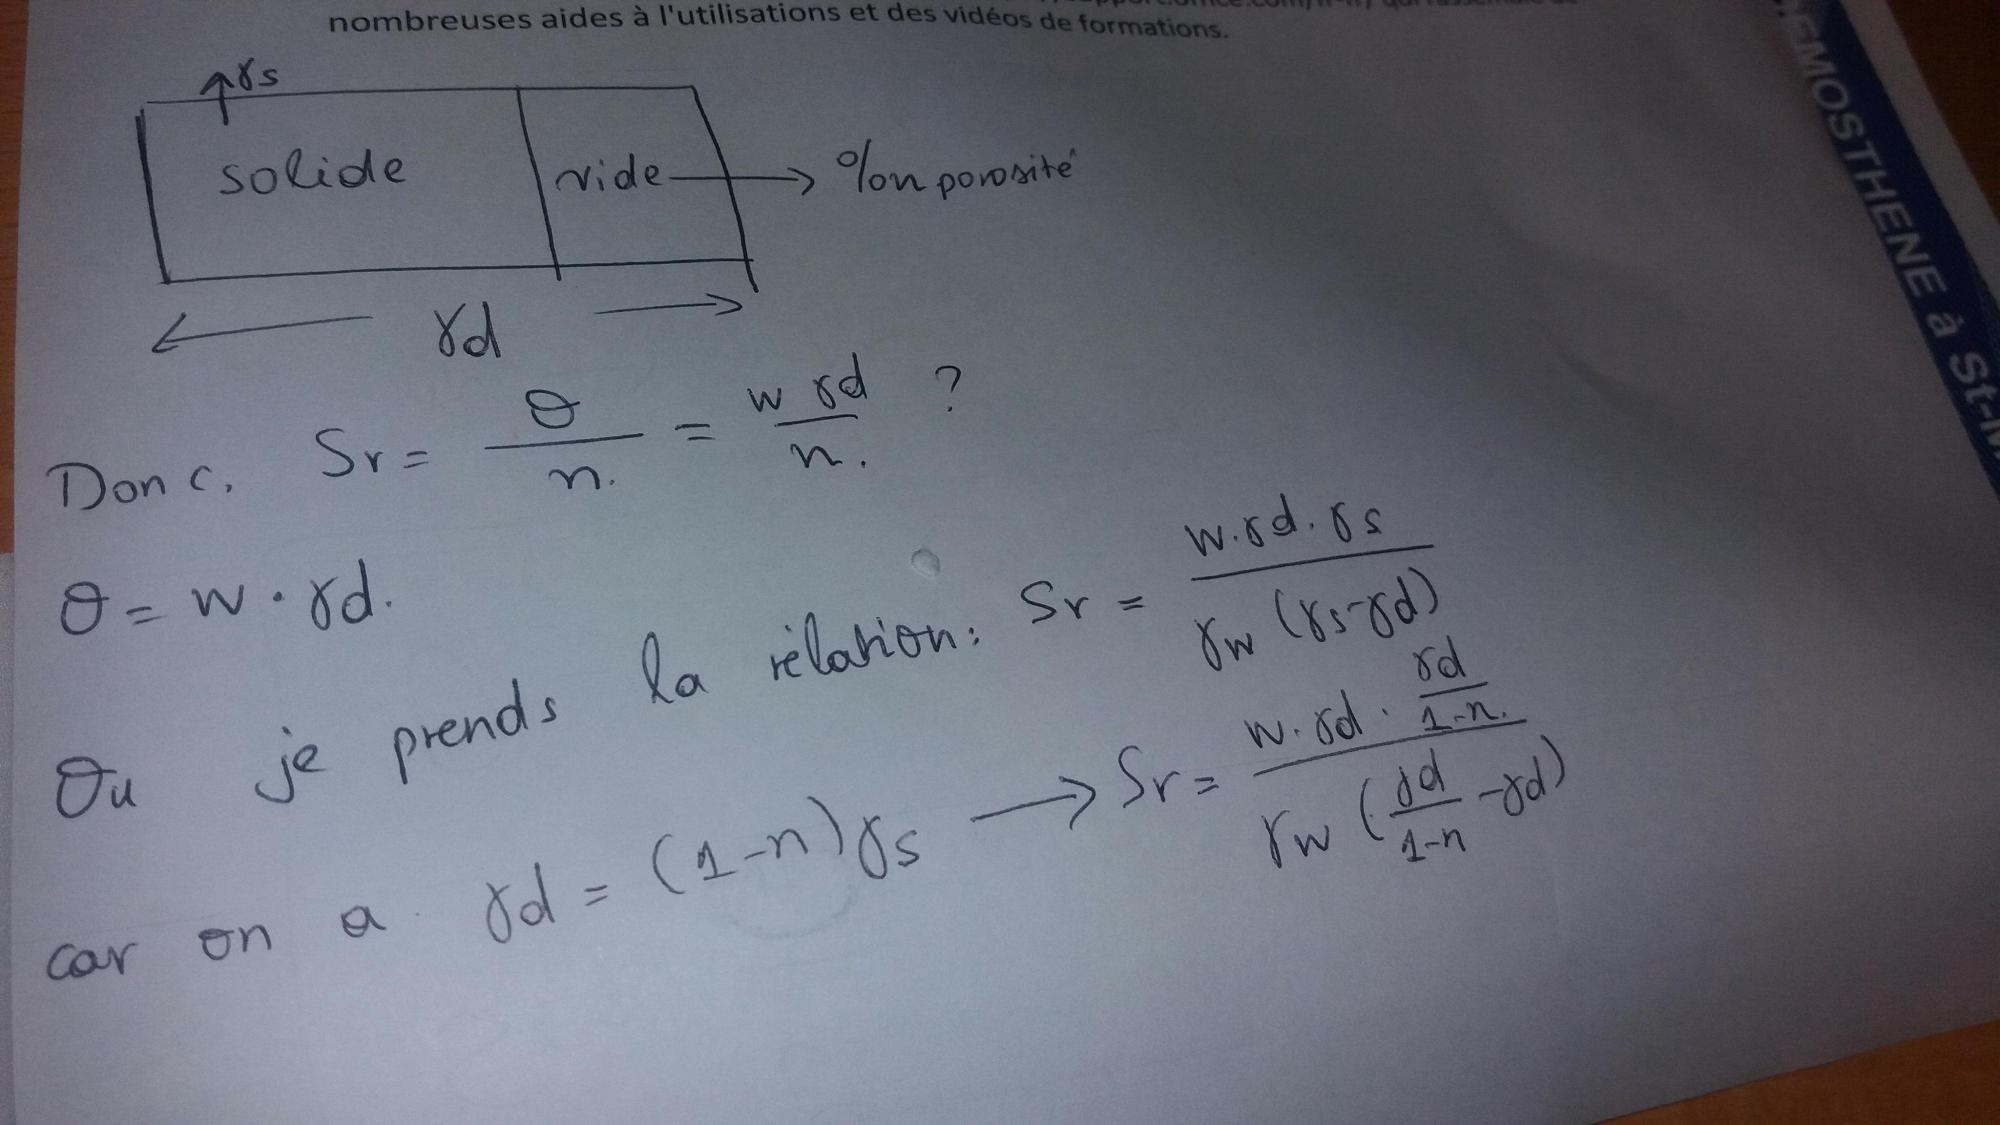 nombreuses aides à l'utilisations et des vidéos de formations.
γs
solide
vide → %n porosité
γd
Donc, Sr = θ / n. = w γd / n. ?
θ = w · γd.
Ou je prends la rélation: Sr = w.γd.γs / γw (γs-γd)
car on a γd = (1-n)γs → Sr = w.γd . γd/1-n. / γw (γd/1-n - γd)
EMOSTHENE à St-M